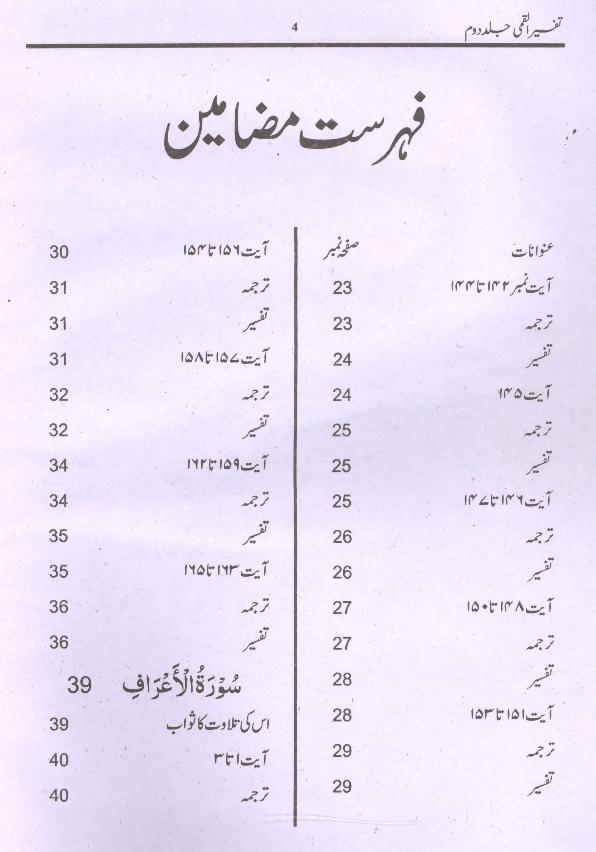 تفسیر القمی جلد دوم 4
فہرست مضامین
عنوانات صفحہ نمبر
آیت نمبر ۱۴۲ تا ۱۴۴ 23
ترجمہ 23
تفسیر 24
آیت ۱۴۵ 24
ترجمہ 25
تفسیر 25
آیت ۱۴۶ تا ۱۴۷ 25
ترجمہ 26
تفسیر 26
آیت ۱۴۸ تا ۱۵۰ 27
ترجمہ 27
تفسیر 28
آیت ۱۵۱ تا ۱۵۳ 28
ترجمہ 29
تفسیر 29
آیت ۱۵۶ تا ۱۵۴ 30
ترجمہ 31
تفسیر 31
آیت ۱۵۷ تا ۱۵۸ 31
ترجمہ 32
تفسیر 32
آیت ۱۵۹ تا ۱۶۲ 34
ترجمہ 34
تفسیر 35
آیت ۱۶۳ تا ۱۶۵ 35
ترجمہ 36
تفسیر 36
سُوْرَةُ الْأَعْرَافِ 39
اس کی تلاوت کا ثواب 39
آیت ۱ تا ۳ 40
ترجمہ 40